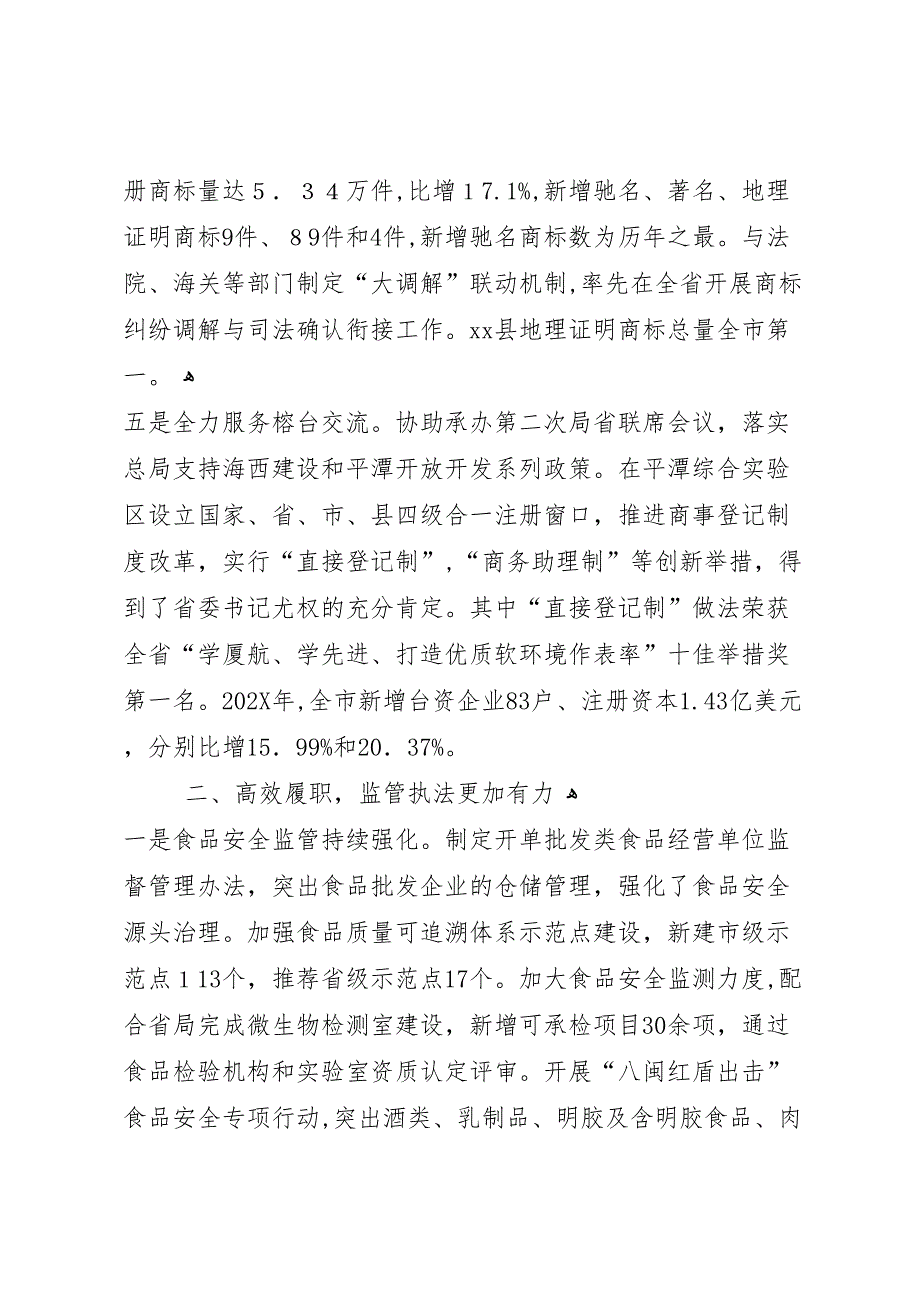 册商标量达５．３４万件,比增１7.1%,新增驰名、著名、地理
证明商标9件、８9件和4件,新增驰名商标数为历年之最。与法
院、海关等部门制定“大调解”联动机制,率先在全省开展商标
纠纷调解与司法确认衔接工作。xx县地理证明商标总量全市第
一。 ﻫ
五是全力服务榕台交流。协助承办第二次局省联席会议，落实
总局支持海西建设和平潭开放开发系列政策。在平潭综合实验
区设立国家、省、市、县四级合一注册窗口，推进商事登记制
度改革，实行“直接登记制”,“商务助理制”等创新举措，得
到了省委书记尤权的充分肯定。其中“直接登记制”做法荣获
全省“学厦航、学先进、打造优质软环境作表率”十佳举措奖
第一名。202X年,全市新增台资企业83户、注册资本1.43亿美元
，分别比增15．99%和20．37%。
二、高效履职，监管执法更加有力 ﻫ
一是食品安全监管持续强化。制定开单批发类食品经营单位监
督管理办法，突出食品批发企业的仓储管理，强化了食品安全
源头治理。加强食品质量可追溯体系示范点建设，新建市级示
范点１13个，推荐省级示范点17个。加大食品安全监测力度,配
合省局完成微生物检测室建设，新增可承检项目30余项，通过
食品检验机构和实验室资质认定评审。开展“八闽红盾出击”
食品安全专项行动,突出酒类、乳制品、明胶及含明胶食品、肉